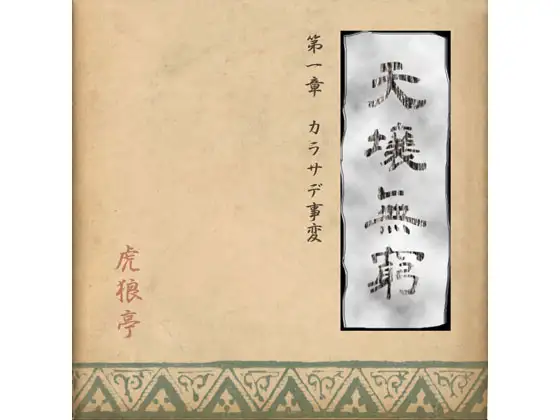 天壌無窮
第一章 カラサデ事変
虎狼亭